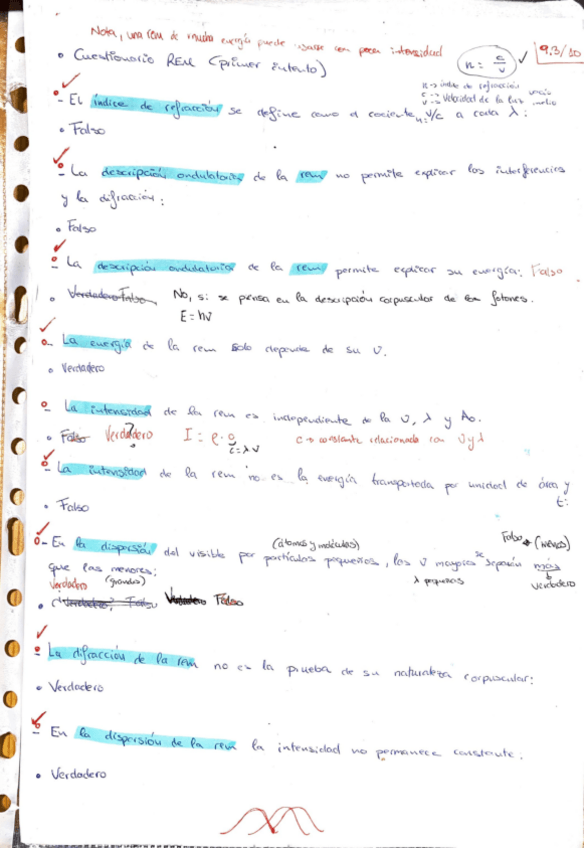 Nota, una rem de mucha energía puede usarse con poca intensidad
• Cuestionario REM (primer intento)
n = c/v
9,3/10
n → índice de refracción
c → vacío
v → velocidad de la luz medio
- El índice de refracción se define como el cociente n= v/c a cada λ:
• Falso
- La descripción ondulatoria de la rem no permite explicar las interferencias
y la difracción:
• Falso
- La descripción ondulatoria de la rem permite explicar su energía: Falso
• Verdadero Falso No, si se piensa en la descripción corpuscular de fotones.
E = hν
- La energía de la rem solo depende de su ν.
• Verdadero
- La intensidad de la rem es independiente de la ν, λ y A₀.
• Falso Verdadero ? I = ρ · c
c = λν
c → constante relacionada con ν y λ
- La intensidad de la rem no es la energía transportada por unidad de área y
t:
• Falso
(átomos y moléculas)
Falso (menos)
- En la dispersión del visible por partículas pequeñas, las ν mayores se separan más
que las menores:
(grandes)
λ pequeñas
Verdadero
Verdadero
• Verdadero, Falso Verdadero Falso
- La difracción de la rem no es la prueba de su naturaleza corpuscular:
• Verdadero
- En la dispersión de la rem la intensidad no permanece constante.
• Verdadero